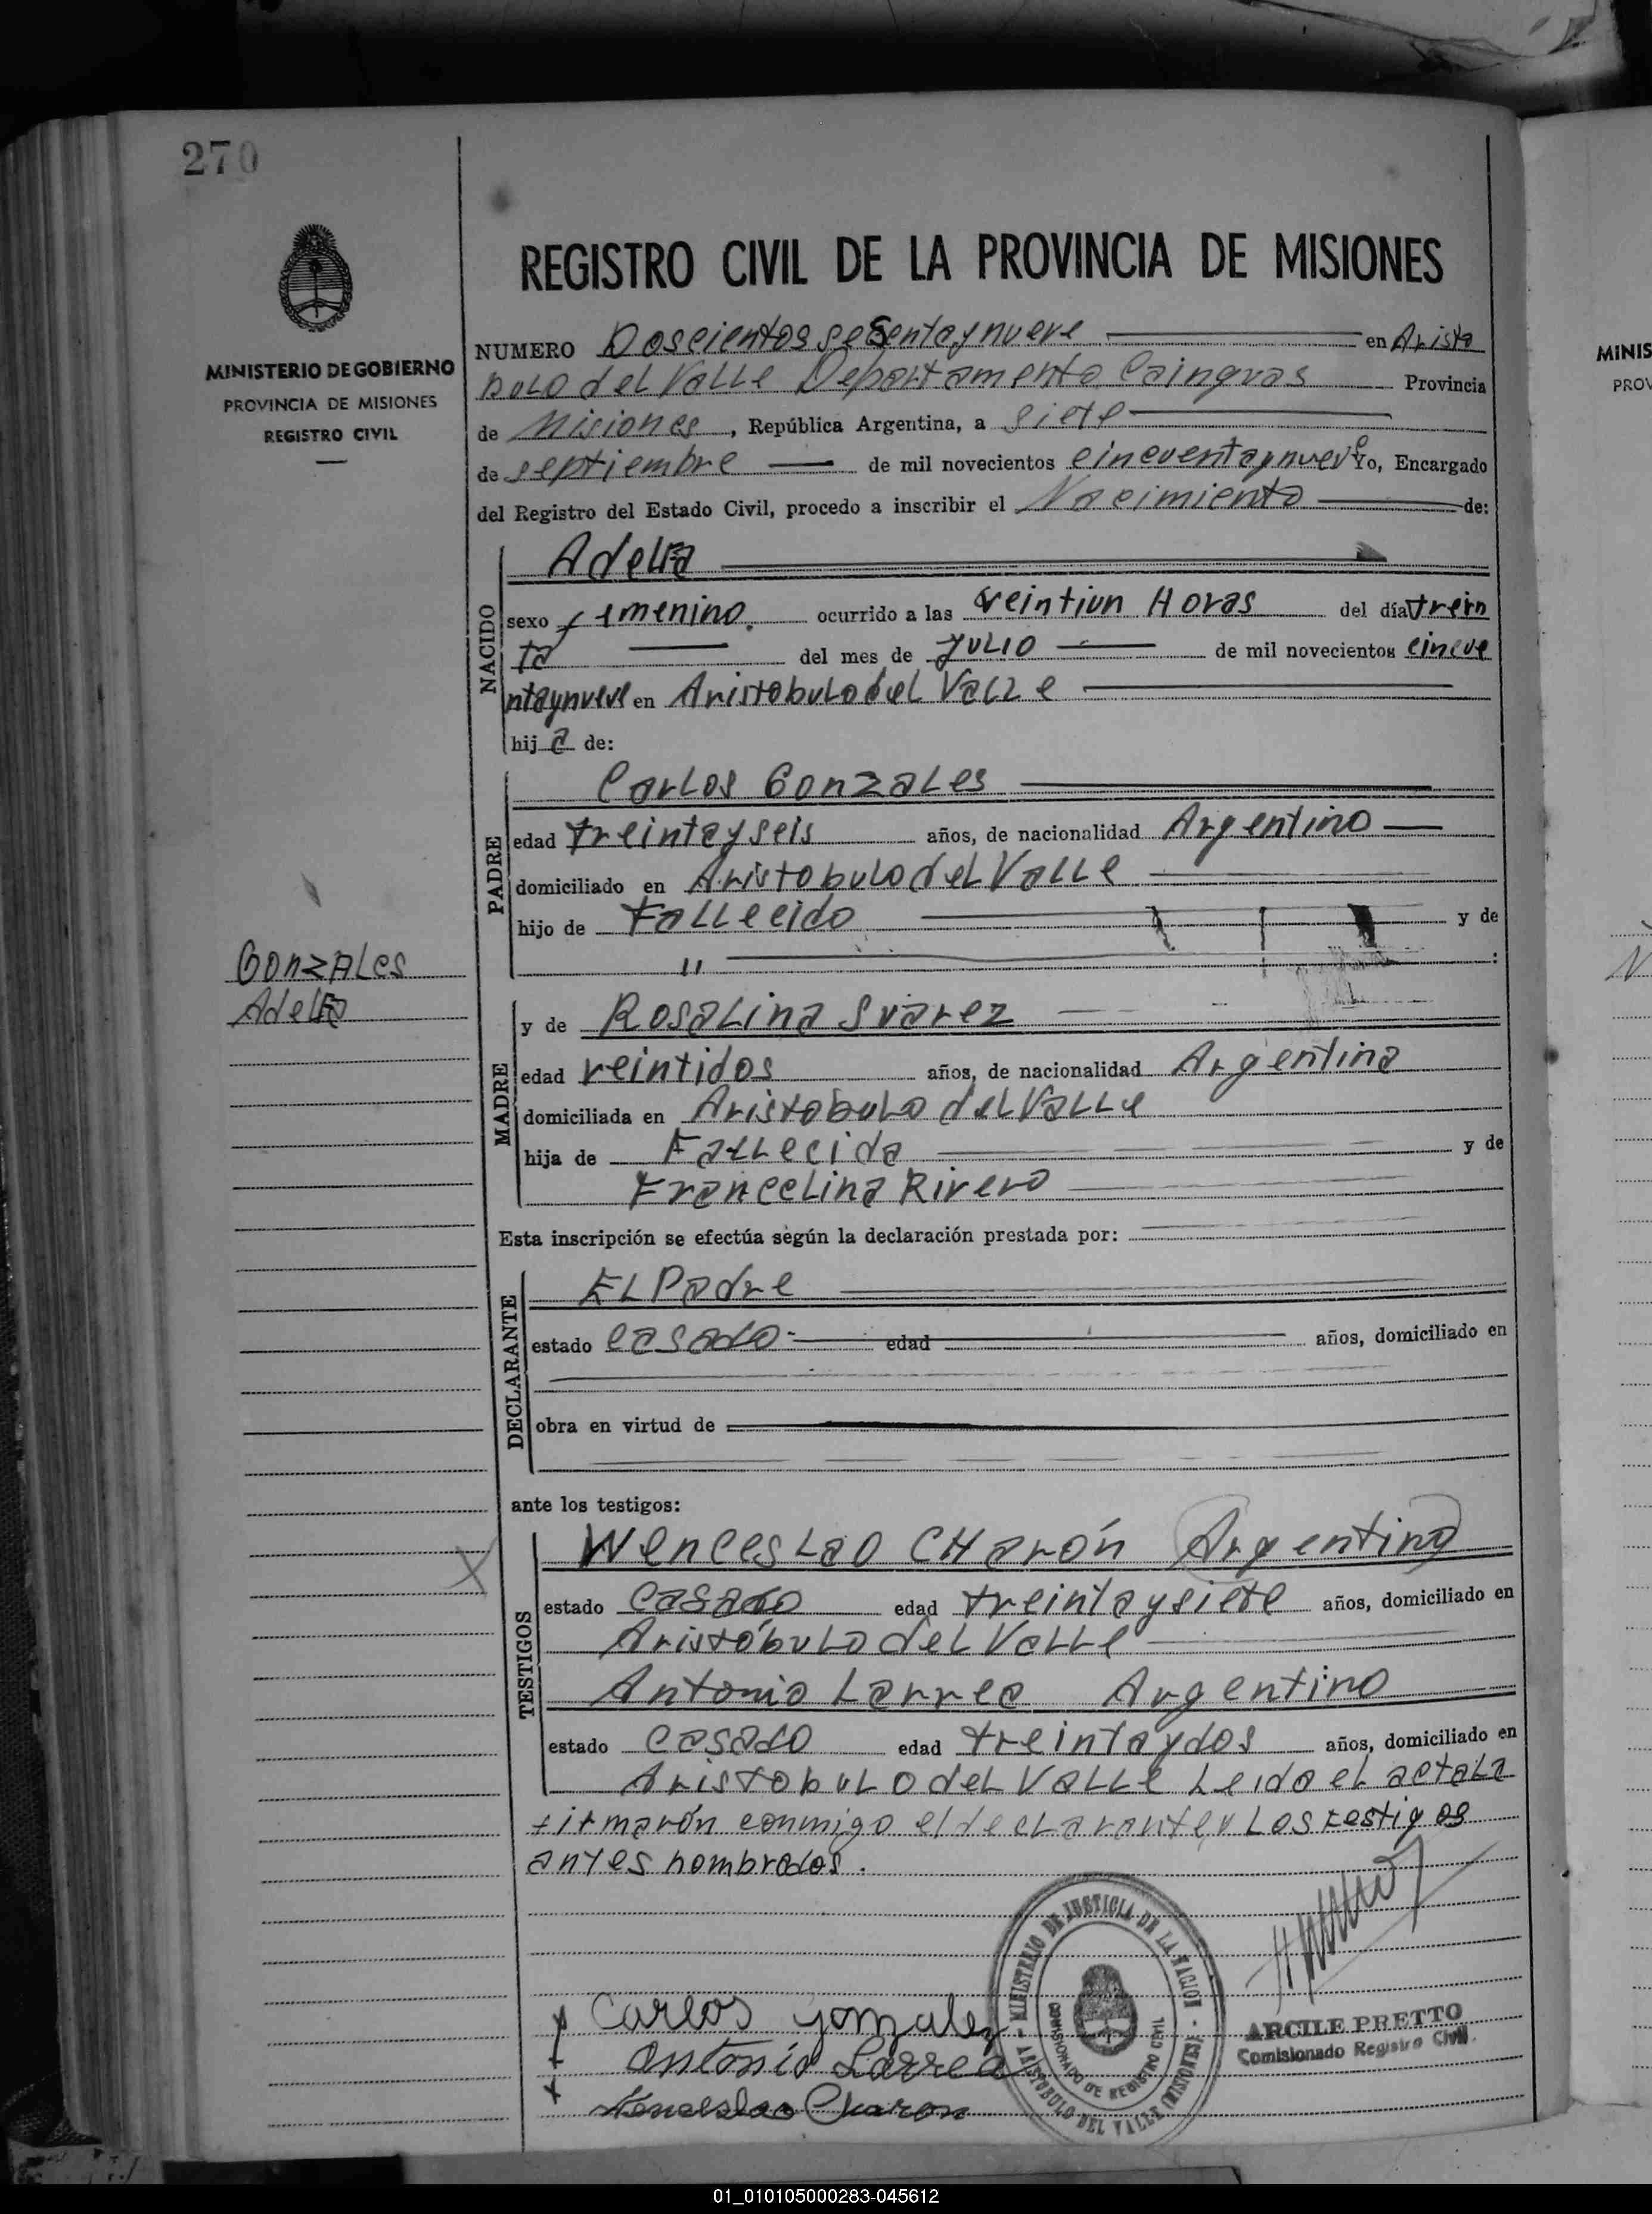 270
MINISTERIO DE GOBIERNO
PROVINCIA DE MISIONES
REGISTRO CIVIL
REGISTRO CIVIL DE LA PROVINCIA DE MISIONES
NUMERO Doscientos sesentaynueve en Aristo
bulo del Valle Departamento Cainguas Provincia
de Misiones, República Argentina, a siete
de septiembre de mil novecientos cincuentaynueve Yo, Encargado
del Registro del Estado Civil, procedo a inscribir el Nacimiento de:
NACIDO
sexo femenino. ocurrido a las veintiun Horas del día trein
ta del mes de JULIO de mil novecientos cincue
ntaynueve en Aristobulo del Valle
hija de:
PADRE
Carlos Gonzales
edad treintayseis años, de nacionalidad Argentino
domiciliado en Aristobulo del Valle
hijo de Fallecido y de
"
Gonzales
MADRE
y de Rosalina Suarez
edad veintidos años, de nacionalidad Argentina
domiciliada en Aristobulo del Valle
hija de Fallecida y de
Francelina Rivero
Esta inscripción se efectúa según la declaración prestada por:
DECLARANTE
El Padre
estado casado edad años, domiciliado en
obra en virtud de
ante los testigos:
TESTIGOS
Wenceslao CHarón Argentino
estado casado edad treintaysiete años, domiciliado en
Aristóbulo del Valle
Antonio Larrea Argentino
estado casado edad treintaydos años, domiciliado en
Aristobulo del Valle Leido el acta la
firmarón conmigo el declarante y Los testigos
antes nombrados.
Carlos Gonzalez
Antonio Larrea
Wenceslao Charon
MINISTERIO DE JUSTICIA DE LA NACION
COMISIONADO DE REGISTRO CIVIL
ARISTOBULO DEL VALLE (MISIONES)
ARCILE PRETTO
Comisionado Registro Civil
MINIS
PROV
01_010105000283-045612